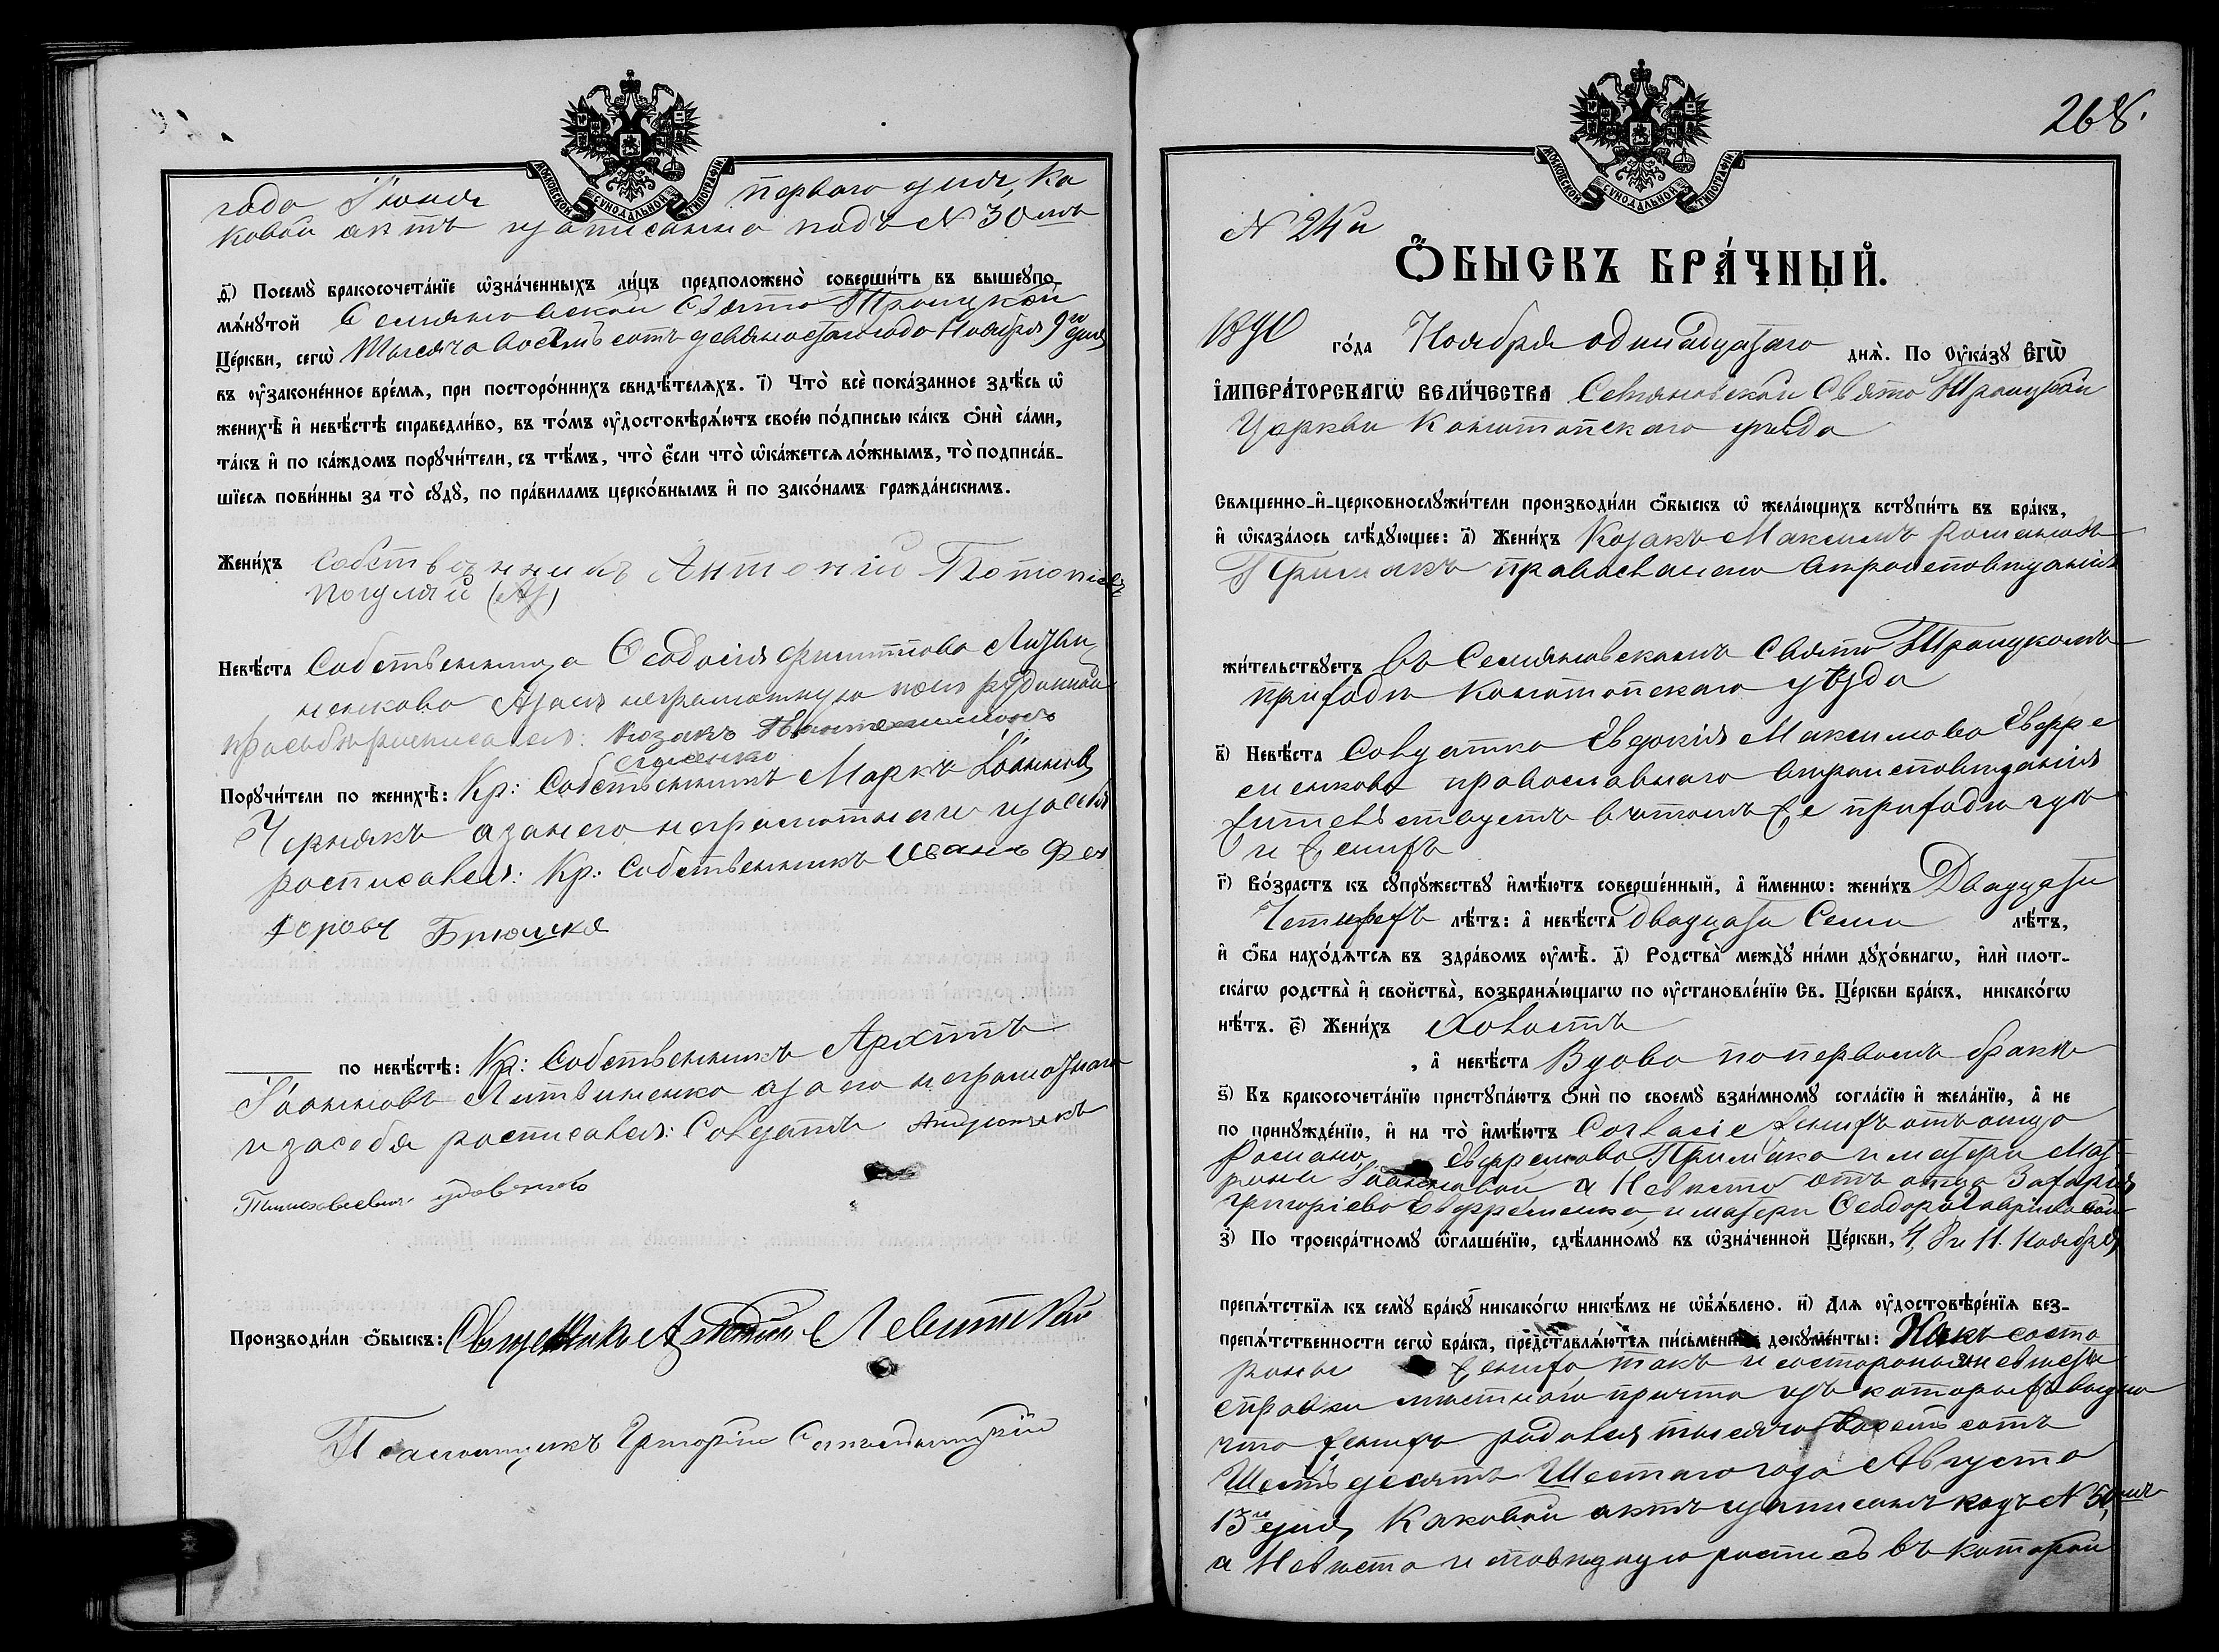 МОСКОВСКОЙ СУНОДАЛЬНОЙ ТИПОГРАФІИ
года Іюня перваго дня, ка
ковой актъ записанно подъ N 30мъ
д҃) Посемꙋ бракосочета́нїе ѡ҆зна́ченныхъ ли́цъ предположено̀ соверши́ть въ вышеꙋпо-
мѧ́нꙋтой Семяновской Свято Троицкой
Це́ркви, сегѡ̀ Тысяча восемь сотъ девяностаго года Ноября 9го дня
въ ᲂу҆законе́нное вре́мѧ, при посторо́ннихъ свидѣ́телѧхъ. і҃) Что̀ всѐ пока́занное здѣ́сь ѡ҆
женихѣ̀ и҆ невѣ́стѣ справедли́во, въ то́мъ ᲂу҆достовѣрѧ́ютъ своею по́дписью ка́къ ѻ҆нѝ са́ми,
та́къ и҆ по ка́ждомъ порꙋчи́тели, съ тѣ́мъ, что̀ є҆́сли что̀ ѡ҆ка́жетсѧ ло́жнымъ, то̀ подписа́в-
шїесѧ пови́нны за то̀ сꙋдꙋ̀, по пра́виламъ церко́внымъ и҆ по зако́намъ гражда́нскимъ.
Жени́хъ Собственникъ Антоній
Погуляй (Аз)
Невѣ́ста Собственница Ѳеодосія Филиппова Литви
ненкова Азаея неграмотную по рудинной
просьбѣ росписался: козакъ Пантелеимонъ
Порꙋчи́тели по женихѣ̀: Кр: Собственникъ Маркъ Іоанновъ
Чернякъ азанего неграмотнаго и засебя
росписался: Кр: Собственникъ Иванъ Фео
доровъ Брюшка
по невѣ́стѣ: Кр: Собственникъ Архіппъ
Іоанновъ Литвиненко азаего неграмотнаго
и засебя росписался: Солдатъ
Производи́ли ѻ҆́быскъ: Священникъ Левитскій
Псаломщикъ Григорій
МОСКОВСКОЙ СУНОДАЛЬНОЙ ТИПОГРАФІИ
268.
N 24й
Ѻ҆БЫСКЪ БРА́ЧНЫЙ.
1890 го́да Ноября одинадцатаго днѧ̀. По ᲂу҆ка́зꙋ Є҆гѡ̀
І҆МПЕРА́ТОРСКАГѠ ВЕЛИ́ЧЕСТВА Семяновской Свято Троицкой
Церкви Конотопскаго уѣзда
Свѧщенно-и҆-церковнослꙋжи́тели производи́ли ѻ҆́быскъ ѡ҆ жела́ющихъ встꙋпи́ть въ бра́къ,
и҆ ѡ҆каза́лось слѣ́дꙋющее: а҃) Жени́хъ Козакъ Максимъ Романовъ
Примакъ православнаго вѣроисповѣданія
жи́тельствꙋетъ въ Семяновскомъ Свято Троицкомъ
приходѣ Конотопскаго уѣзда
в҃) Невѣ́ста Солдатка Евдокія Максимова Евфре
менкова православнаго вѣроисповѣданія
жительствуетъ вътомъ же приходѣ гдѣ
и женихъ
г҃) Во́зрастъ къ сꙋпрꙋ́жествꙋ и҆мѣ́ютъ соверше́нный, а҆ и҆́менно: жени́хъ Двадцати
Четырехъ лѣ́тъ: а҆ невѣ́ста Двадцати Семи лѣ́тъ,
и҆ ѻ҆́ба нахо́дѧтсѧ въ здра́вомъ ᲂу҆мѣ̀. д҃) Родства̀ междꙋ̀ ни́ми дꙋхо́внагѡ, и҆лѝ плот-
ска́гѡ родства̀ и҆ свойства̀, возбранѧ́ющагѡ по ᲂу҆становле́нїю Св. Це́ркви бра́къ, никако́гѡ
нѣ́тъ. є҃) Жени́хъ Холостъ
, а҆ невѣ́ста Вдова по первомъ бракѣ
ѕ҃) Къ бракосочета́нїю пристꙋпа́ютъ ѻ҆нѝ по своемꙋ̀ взаи́мномꙋ согла́сїю и҆ жела́нїю, а҆ не
по принꙋжде́нїю, и҆ на то̀ и҆мѣ́ютъ Согласіе женихъ отъ отца
Романа Евфремова Примака и матери Мат
роны Іоанновой а Невѣста отъ отца Захарія
Григоріева Евфременка, и матери Ѳеодоры Гавриловой
з҃) По троекра́тномꙋ ѡ҆глаше́нїю, сдѣ́ланномꙋ въ ѡ҆зна́ченной Це́ркви, 4, 8 и 11. Ноября
препѧ́тствїѧ къ семꙋ̀ бра́кꙋ никако́гѡ никѣ́мъ не ѡ҆б̾ѧ́влено. и҃) Длѧ ᲂу҆достовѣре́нїѧ без-
препѧ́тственности сегѡ̀ бра́ка, представлѧ́ютсѧ пи́сьменные докꙋме́нты: Какъ состо
роны жениха, такъ и состороны невѣсты
справки мѣстнаго причта изъ которыхъ видно
что женихъ родился тысяча восемь сотъ
Шестьдесятъ Шестаго года Августа
13го дня, Каковой актъ записанъ подъ N 50мъ
а Невѣста исповѣдную роспись въ которой